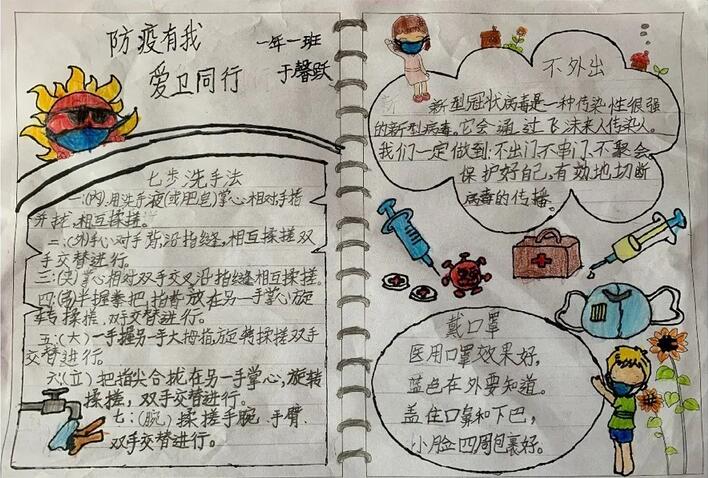 防疫有我
爱卫同行
一年一班
于馨跃
七步洗手法
一:(内)用洗手液(或肥皂)掌心相对手指
并拢,相互揉搓。
二:(外)手心对手背沿指缝,相互揉搓双
手交替进行。
三:(夹)掌心相对双手交叉沿指缝相互揉搓。
四(弓)半握拳把,指背放在另一手掌心旋
转揉搓,双手交替进行。
五:(大)一手握另一手大拇指旋转揉搓双手
交替进行。
六(立)把指尖合拢在另一手掌心,旋转
揉搓,双手交替进行。
七:(腕)揉搓手腕、手臂、
双手交替进行。
不外出
新型冠状病毒是一种传染性很强
的新型病毒。它会通过飞沫来人传人。
我们一定做到:不出门、不串门、不聚会。
保护好自己,有效地切断
病毒的传播。
戴口罩
医用口罩效果好,
蓝色在外要知道。
盖住口鼻和下巴,
小脸四周包裹好。